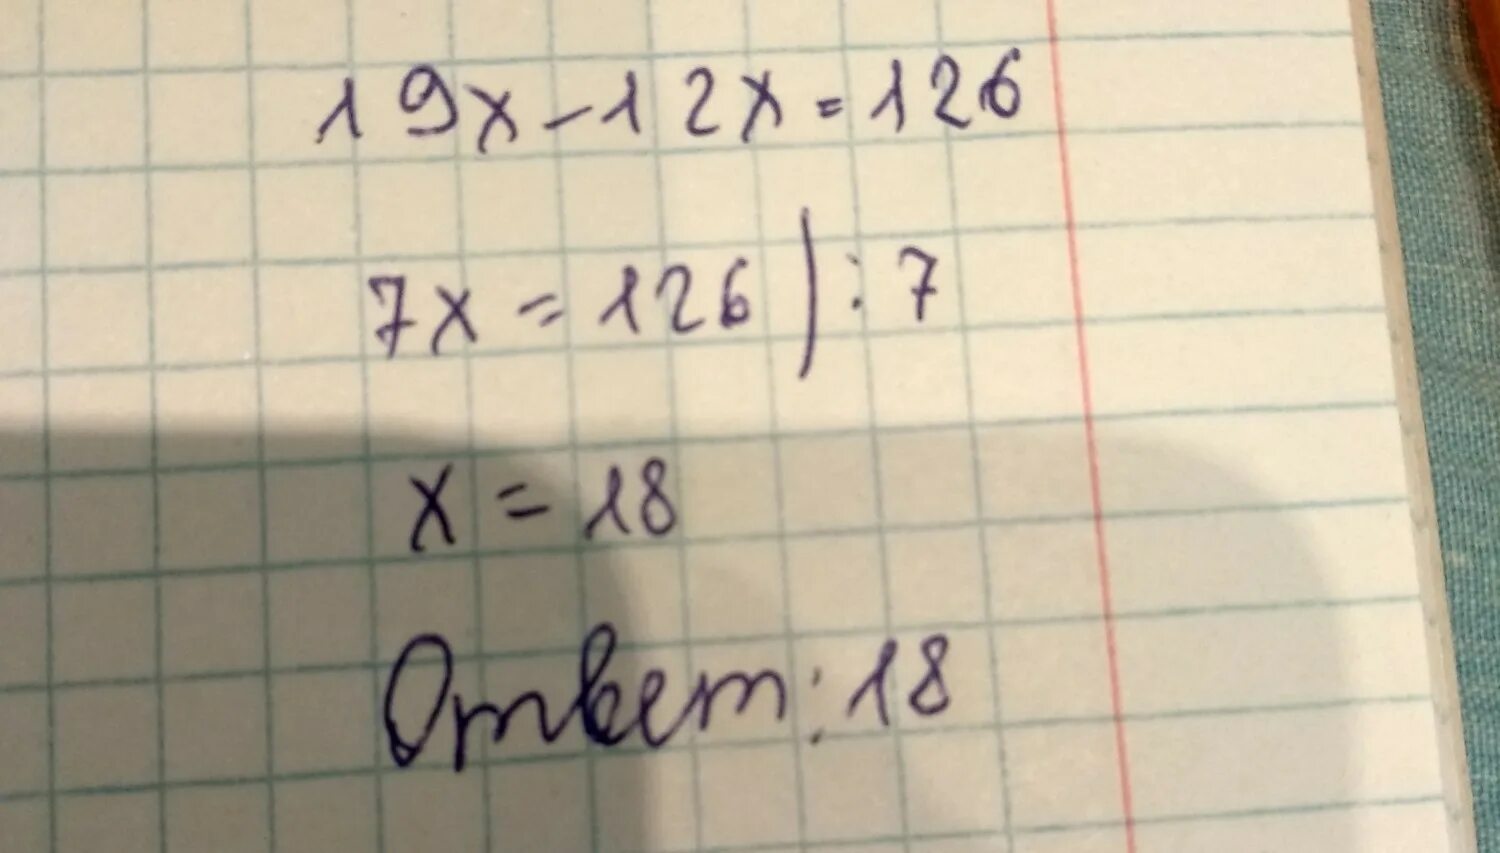 19x-12x=126
7x=126 | :7
x=18
Ответ: 18